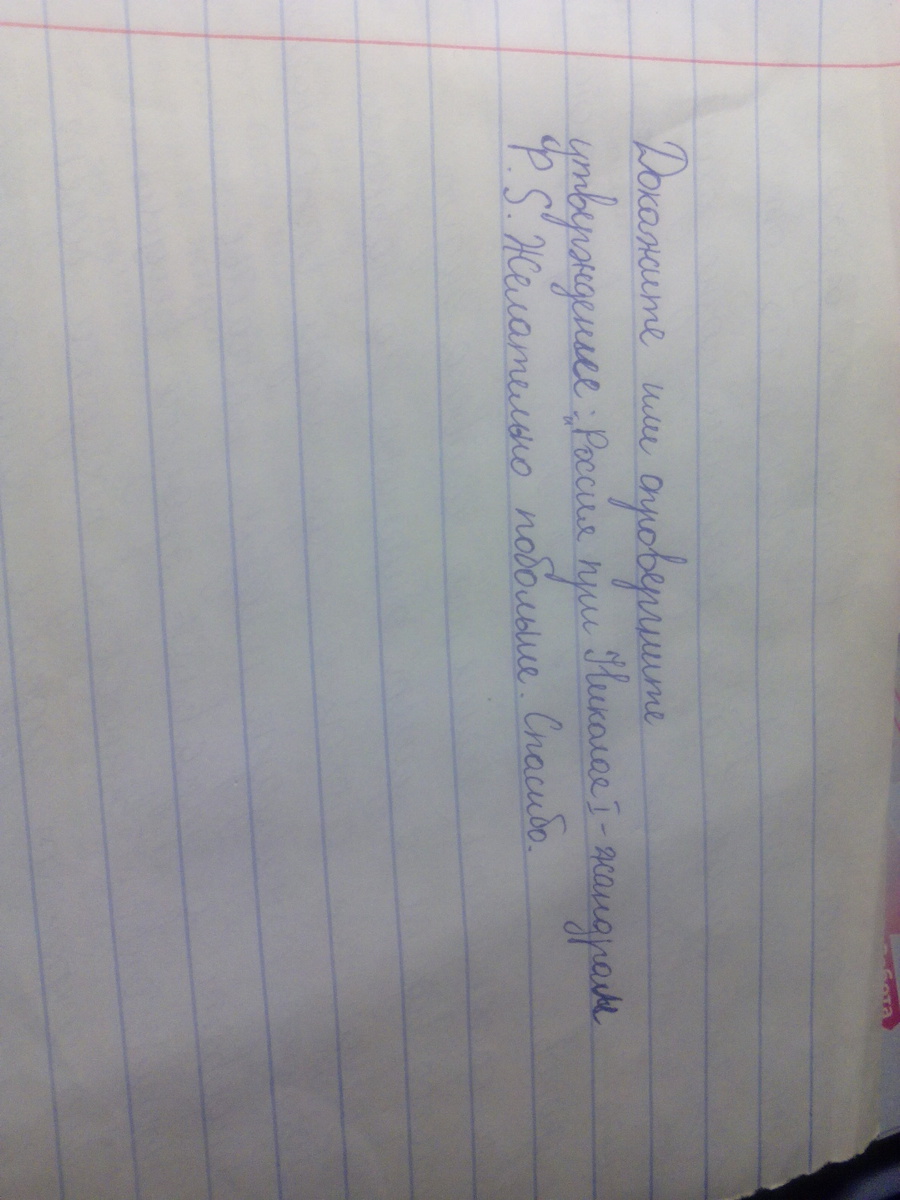 Докажите или опровергните
утверждение: „Россия при Николае I - жандрам
Ф
P. S. Желательно побольше. Спасибо.